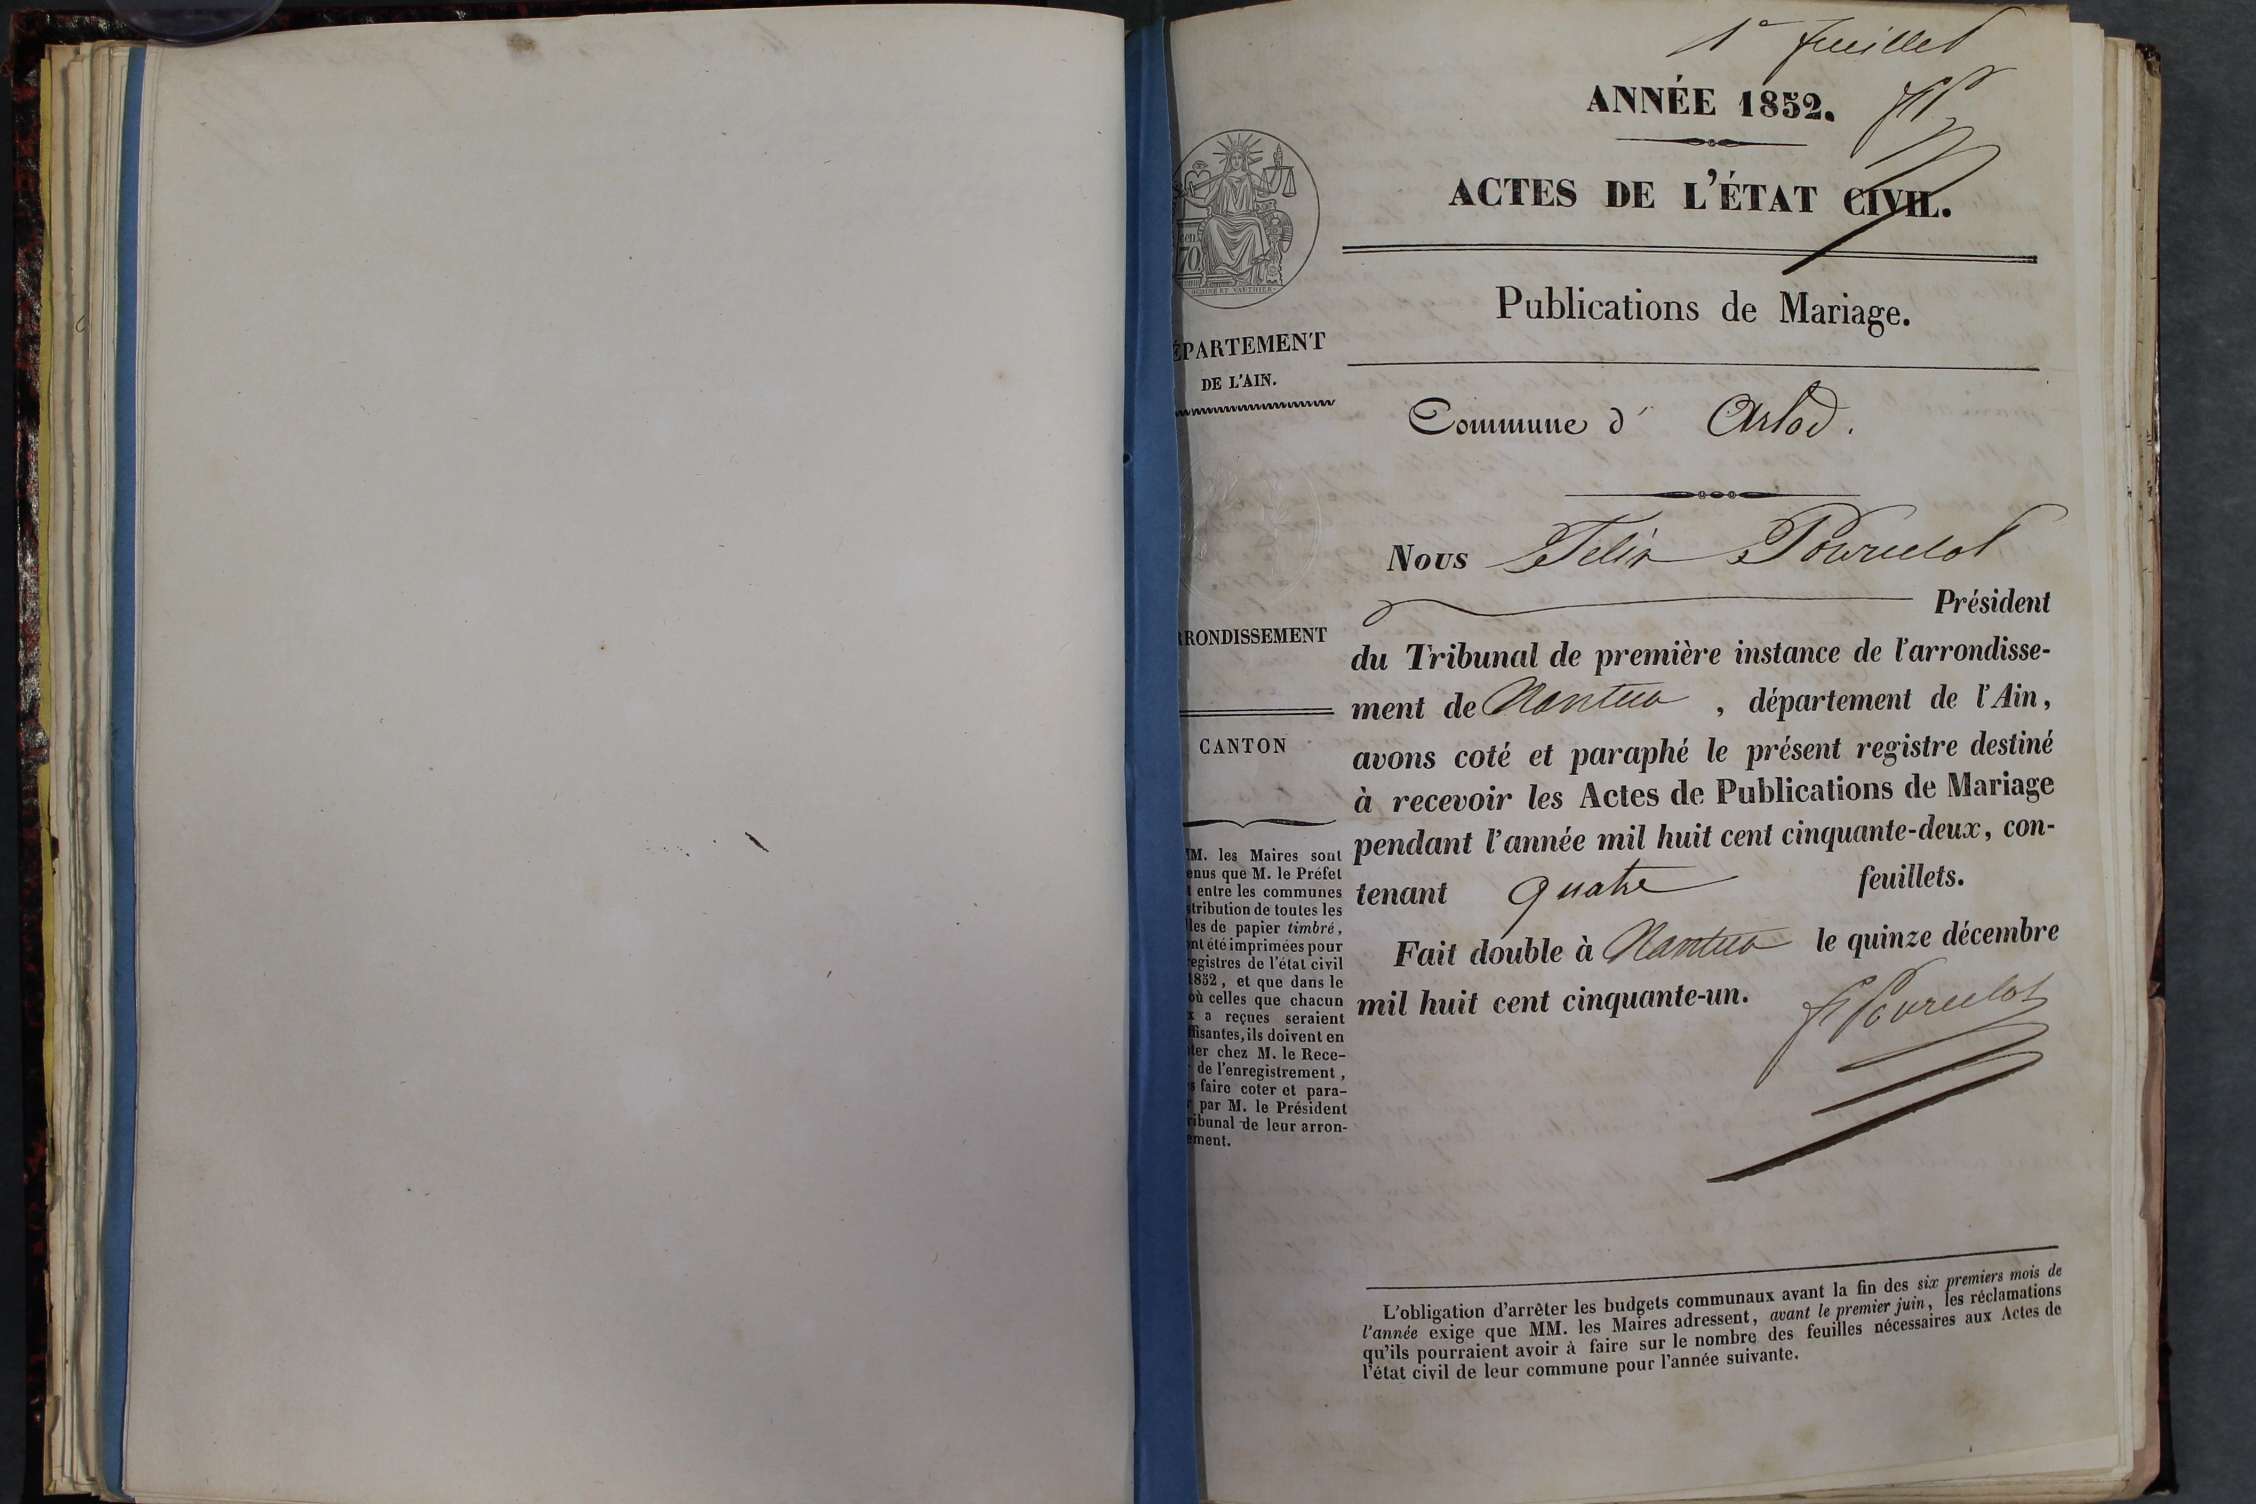 1er feuillet
ANNÉE 1852.
ACTES DE L'ÉTAT CIVIL.
cen
70
ET VAUTHIER
Publications de Mariage.
ÉPARTEMENT
DE L'AIN.
Commune d' Arlod.
Nous Félix Pourcelot
Président
RRONDISSEMENT
du Tribunal de première instance de l'arrondisse-
ment de Nantua, département de l'Ain,
CANTON
avons coté et paraphé le présent registre destiné
à recevoir les Actes de Publications de Mariage
pendant l'année mil huit cent cinquante-deux, con-
tenant quatre feuillets.
Fait double à Nantua le quinze décembre
mil huit cent cinquante-un.
F Pourcelot
MM. les Maires sont
enus que M. le Préfet
t entre les communes
stribution de toutes les
les de papier timbré,
ont été imprimées pour
registres de l'état civil
1852, et que dans le
où celles que chacun
x a reçues seraient
ffisantes, ils doivent en
ter chez M. le Rece-
r de l'enregistrement,
s faire coter et para-
r par M. le Président
ribunal de leur arron-
ement.
L'obligation d'arrêter les budgets communaux avant la fin des six premiers mois de
l'année exige que MM. les Maires adressent, avant le premier juin, les réclamations
qu'ils pourraient avoir à faire sur le nombre des feuilles nécessaires aux Actes de
l'état civil de leur commune pour l'année suivante.